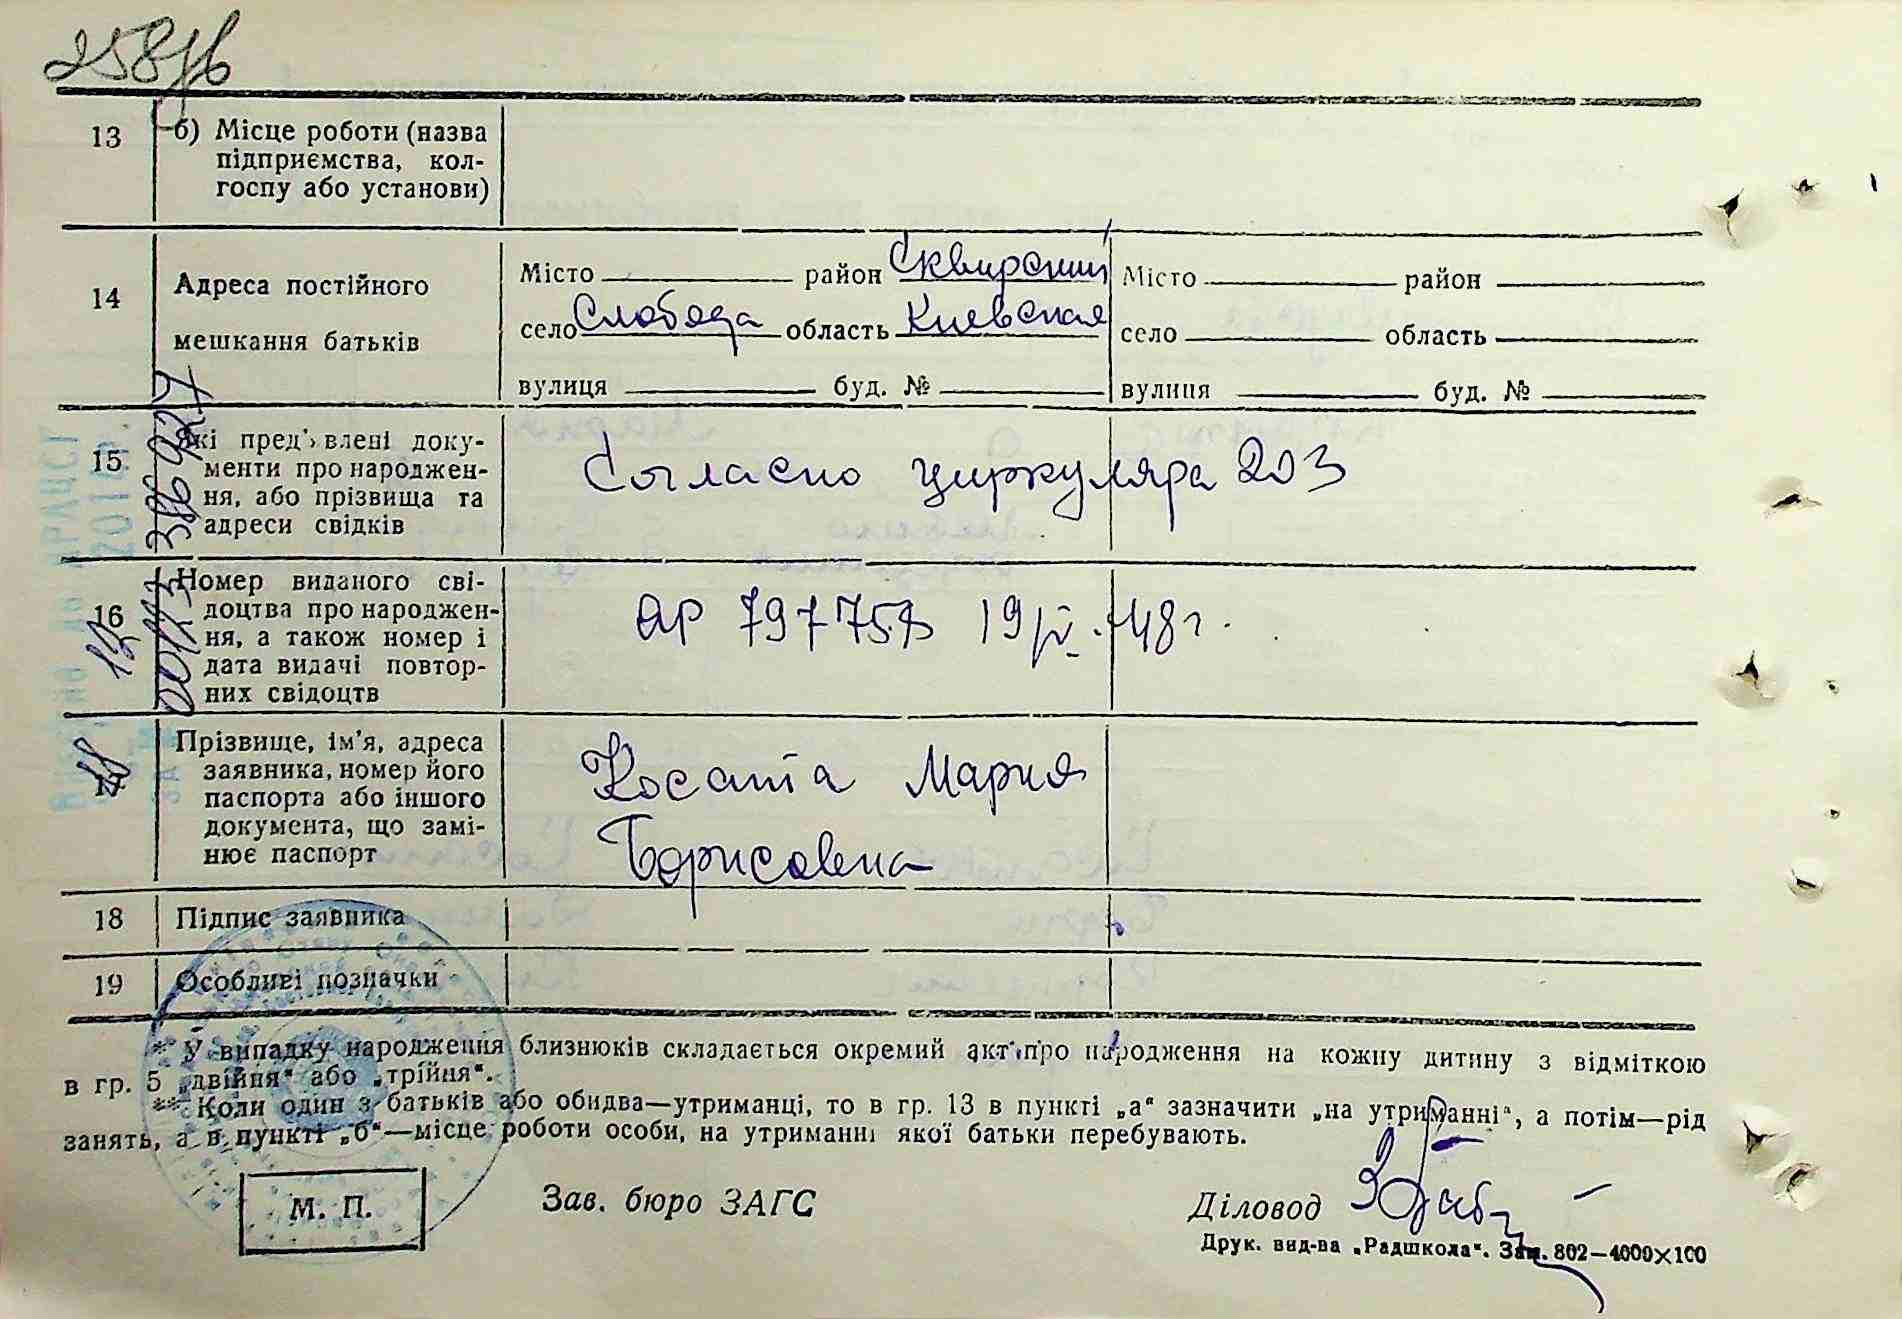 258/в
13 б) Місце роботи (назва
підприємства, кол-
госпу або установи)
14 Адреса постійного
мешкання батьків
Місто район Сквирский Місто район
село Слобода область Киевская село область
вулиця буд. № вулиця буд. №
15 Які пред'явлені доку-
менти про народжен-
ня, або прізвища та
адреси свідків
Согласно циркуляра 203
16 Номер виданого сві-
доцтва про народжен-
ня, а також номер і
дата видачі повтор-
них свідоцтв
19/IV-48 г.
17 Прізвище, ім'я, адреса
заявника, номер його
паспорта або іншого
документа, що замі-
нює паспорт
Мария
Борисовна
18 Підпис заявника
19 Особливі позначки
* У випадку народження близнюків складається окремий акт про народження на кожну дитину з відміткою
в гр. 5 „двійня“ або „трійня“.
** Коли один з батьків або обидва—утриманці, то в гр. 13 в пункті „а“ зазначити „на утриманні“, а потім—рід
занять, а в пункті „б“—місце роботи особи, на утриманні якої батьки перебувають.
М. П.
Зав. бюро ЗАГС
Діловод
Друк. вид-ва „Радшкола“. Зам. 802—4000×100